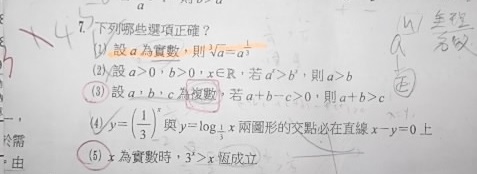 7. 下列哪些選項正確？
(1) 設 a 為實數，則 ∛a = a^(1/3)
(2) 設 a>0，b>0，x∈R，若 aˣ>bˣ，則 a>b
(3) 設 a，b，c 為複數，若 a+b−c>0，則 a+b>c
(4) y=(1/3)ˣ 與 y=log_(1/3) x 兩圖形的交點必在直線 x−y=0 上
(5) x 為實數時，3ˣ>x 恆成立
於需
由